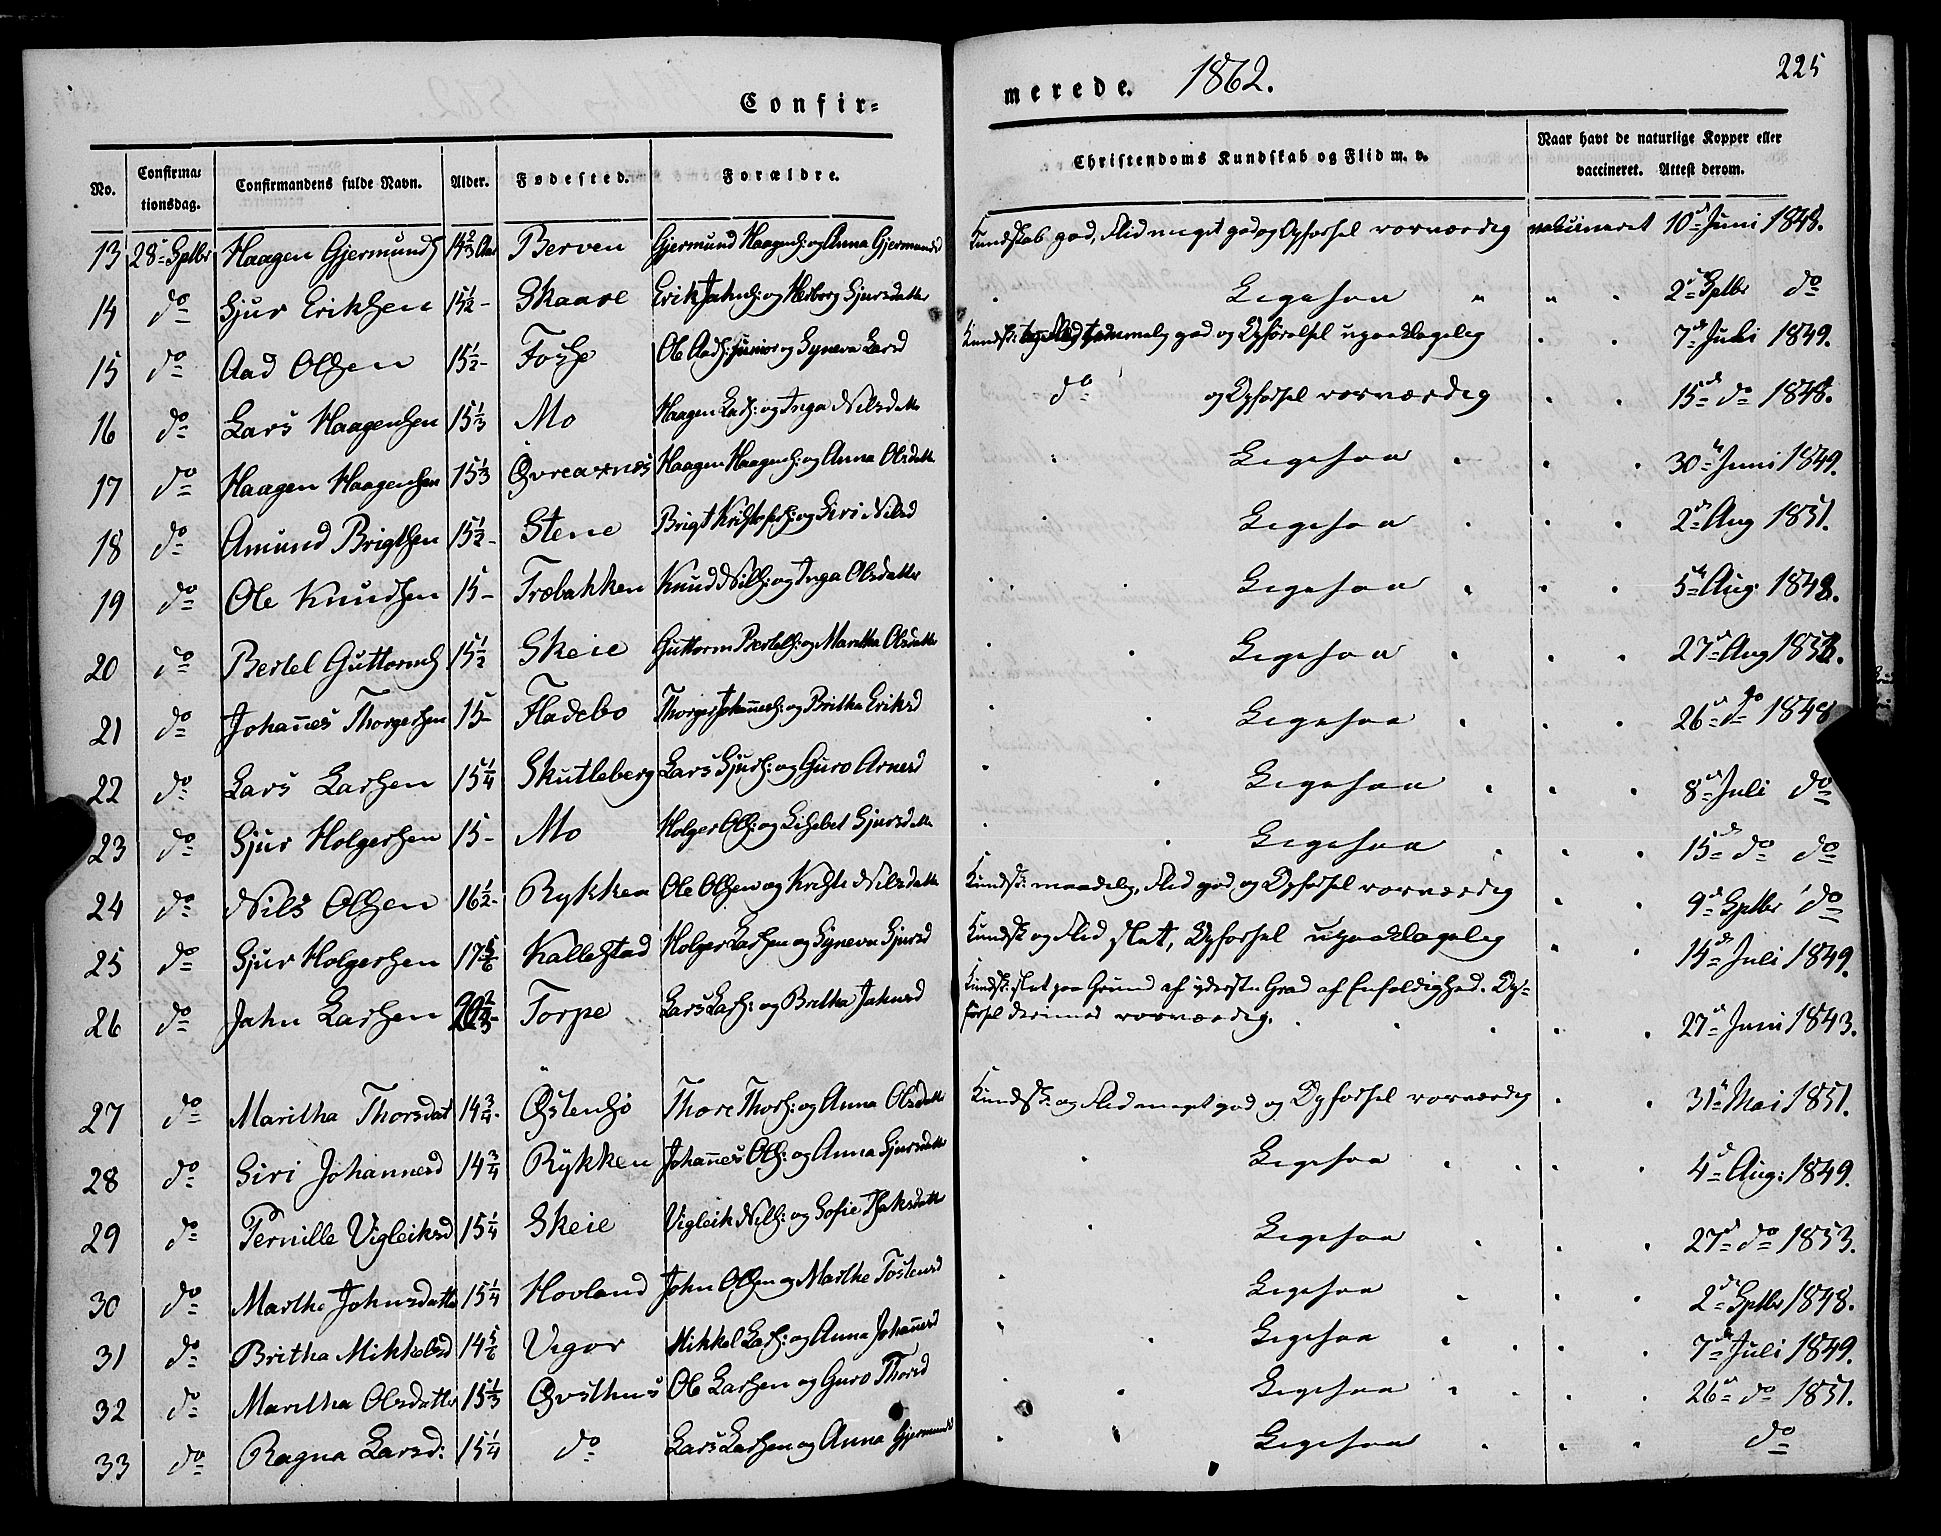 Confir-
merede. 1862. 225
No. Confirma-tionsdag. Confirmandens fulde Navn. Alder. Fødested. Forældre. Christendoms Kundskab og Flid m. v. Naar havt de naturlige Kopper eller vaccineret. Attest derom.
13 28de Sptbr Haagen Gjermunds 14 2/3 Aar Berven Gjermund Haagens: og Anna Gjermundsd Kundskab god, Flid meget god og Opførsel rosværdig vakcineret 10de Juni 1848.
14 do Sjur Eriksen 15 1/2 - Skaare Erik Jahns: og Herborg Sjursdatter Ligesaa " " 2de Sptbr do
15 do Aad Olsen 15 1/2 - Fosse Ole Aads: junior og Syneva Larsd Kundsk: og Flid temmelig god og Opførelsel upaaklagelig 7de Juli 1849.
16 do Lars Haagensen 15 1/3 Mo Haagen Lars: og Inga Nilsdatter do og Opførsel rosværdig 15de do 1848.
17 do Haagen Haagensen 15 1/3 Øvreaxnes Haagen Haagens: og Anna Olsdatter Ligesaa 30te Juni 1849.
18 do Amund Brigtsen 15 1/2 - Stene Brigt Kristofers: og Siri Nilsd Ligesaa 2de Aug 1851.
19 do Ole Knudsen 15 - Træbakken Knud Nils: og Inga Olsdatter Ligesaa 5te Aug: 1848.
20 do Bertel Guttorms 15 1/2 Skeie Guttorm Bertels: og Maritha Olsdatter Ligesaa 27de Aug
21 do Johannes Thorgersen 15 - Fladebo Thorger Johannes: og Britha Eriksd Ligesaa 26de do 1848
22 do Lars Larsen 15 1/4 Skutleberg Lars Sjurs: og Guro Arnesd Ligesaa 8de Juli do
23 do Sjur Holgersen 15 - Mo Holger Ols: og Lisebet Sjursdatter Ligesaa 15de do do
24 do Nils Olsen 16 1/2 - Rykken Ole Olsen og Kristi Nilsdatter Kundsk: maadelig, Flid god og Opførsel rosværdig 9de Sptbr do
25 do Sjur Holgersen 17 5/6 Kallestad Holger Larsen og Syneva Sjursd Kundsk og Flid slet, Opførsel upaaklagelig 14de Juli 1849.
26 do Jahn Larsen Torpe Lars Lars: og Britha Jahnsd Kundsk: slet paa Grund af yderste Grad af Enfoldighed. Op-
førsel derimod rosværdig. 27de Juni 1843.
27 do Maritha Thorsdat 14 3/4 - Østensø Thore Thors: og Anna Olsdatter Kundsk: og Flid meget god og Opførsel rosværdig 31te Mai 1851.
28 do Siri Johannesd 14 3/4 Rykken Johannes Ols: og Anna Sjursdatter Ligesaa 4de Aug: 1849.
29 do Pernille Vigleiksd 15 1/4 Skeie Vigleik Nils: og Sofie Isaksdatter Ligesaa 27de do 1853.
30 do Marthe Johnsdatter 15 1/4 Hovland John Olsen og Marthe Tostensd Ligesaa 2de Sptbr 1848.
31 do Britha Mikkelsd 14 5/6 Vigør Mikkel Lars: og Anna Johannesd Ligesaa 7de Juli 1849.
32 do Maritha Olsdatter 15 1/3 Øvsthus Ole Larsen og Guro Thorsd Ligesaa 26de do 1851.
33 do Ragna Larsd: 15 1/4 do Lars Larsen og Anna Gjermundsd Ligesaa do